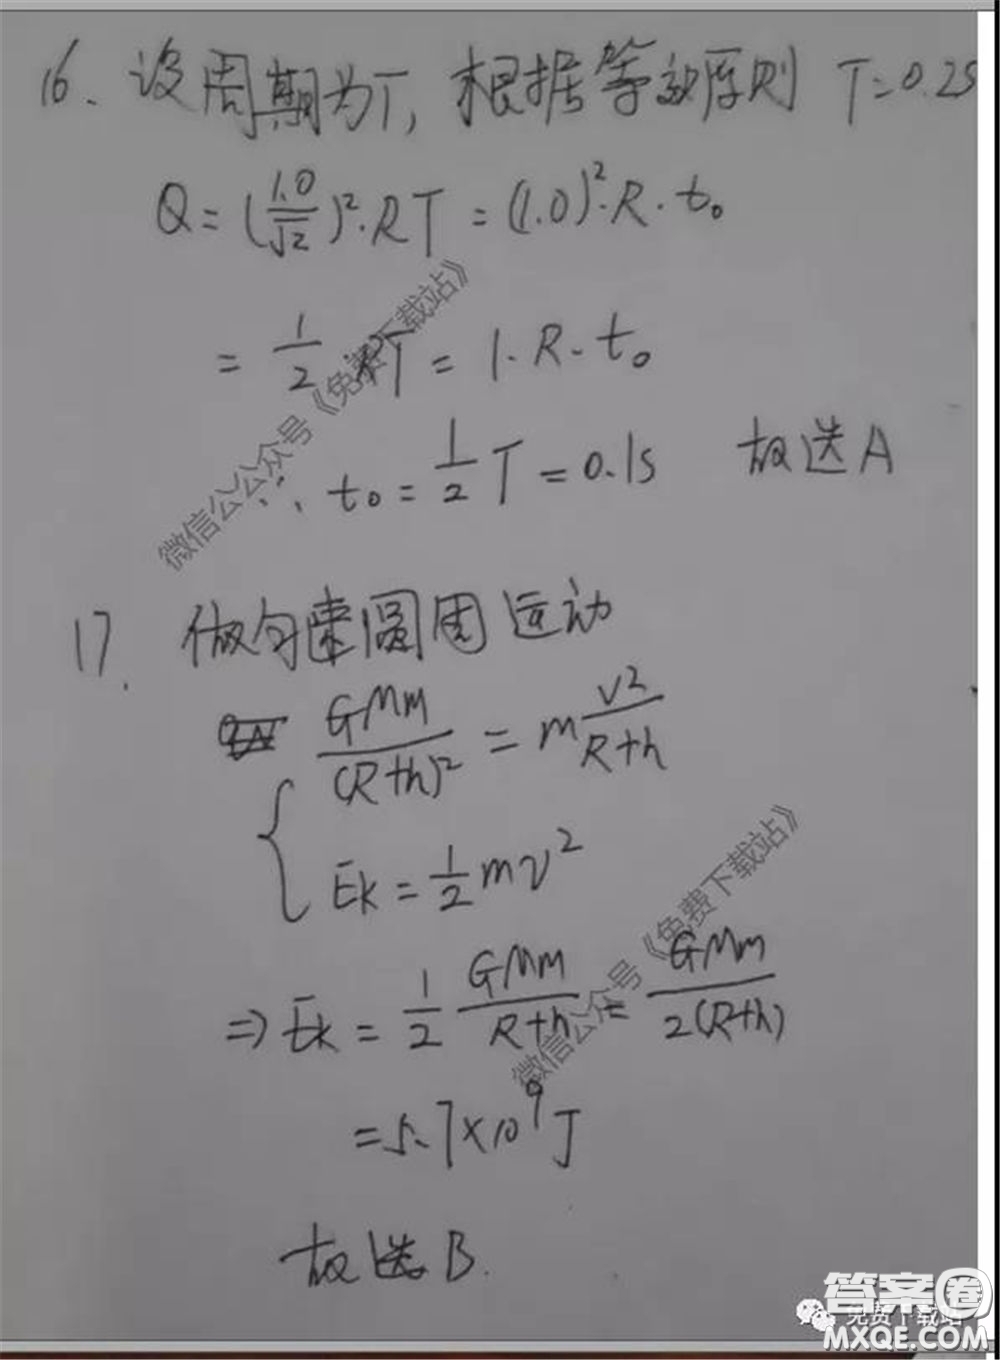 16、设周期为T，根据等效原则 T=0.2s
Q=(1.0/√2)²·RT=(1.0)²·R·t₀
=1/2 RT=1·R·t₀
∴ t₀=1/2 T=0.1s 故选A
微信公众号《免费下载站》
17. 做匀速圆周运动
GMm/(R+h)²=m v²/(R+h)
{ Ek=1/2 mv²
⇒ Ek=1/2 GMm/(R+h)=GMm/2(R+h)
微信公公众号《免费下载站》
=5.7×10⁹J
故选B.
答案圈
免费下载站
MXQE.COM